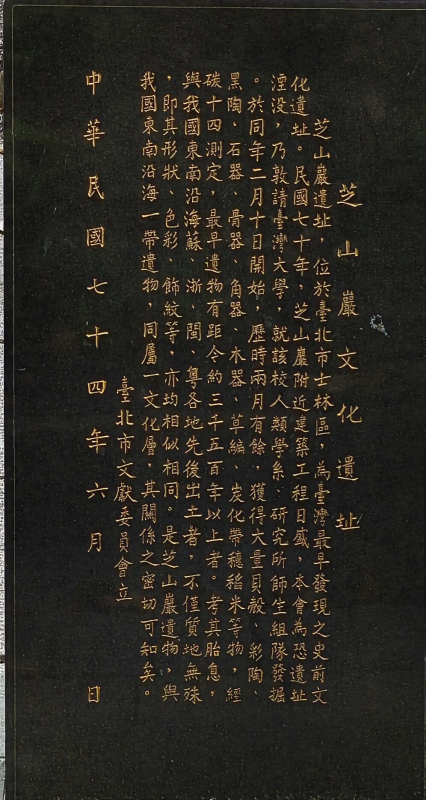 芝山巖文化遺址
芝山巖遺址，位於臺北市士林區，為臺灣最早發現之史前文
化遺址。民國七十年，芝山巖附近建築工程日盛，本會為恐遺址
湮没，乃敦請臺灣大學，就該校人類學系、研究所師生組隊發掘
。於同年二月十日開始，歷時兩月有餘，獲得大量貝殼、彩陶、
黑陶、石器、骨器、角器、木器、草編、炭化帶穗稻米等物，經
碳十四測定，最早遺物有距今約三千五百年以上者。考其胎息，
與我國東南沿海蘇、浙、閩、粵各地先後出土者，不僅質地無殊
，即其形狀、色彩、飾紋等，亦均相似相同。是芝山巖遺物，與
我國東南沿海一帶遺物，同屬一文化層，其關係之密切可知矣。
臺北市文獻委員會立
中華民國七十四年六月　日